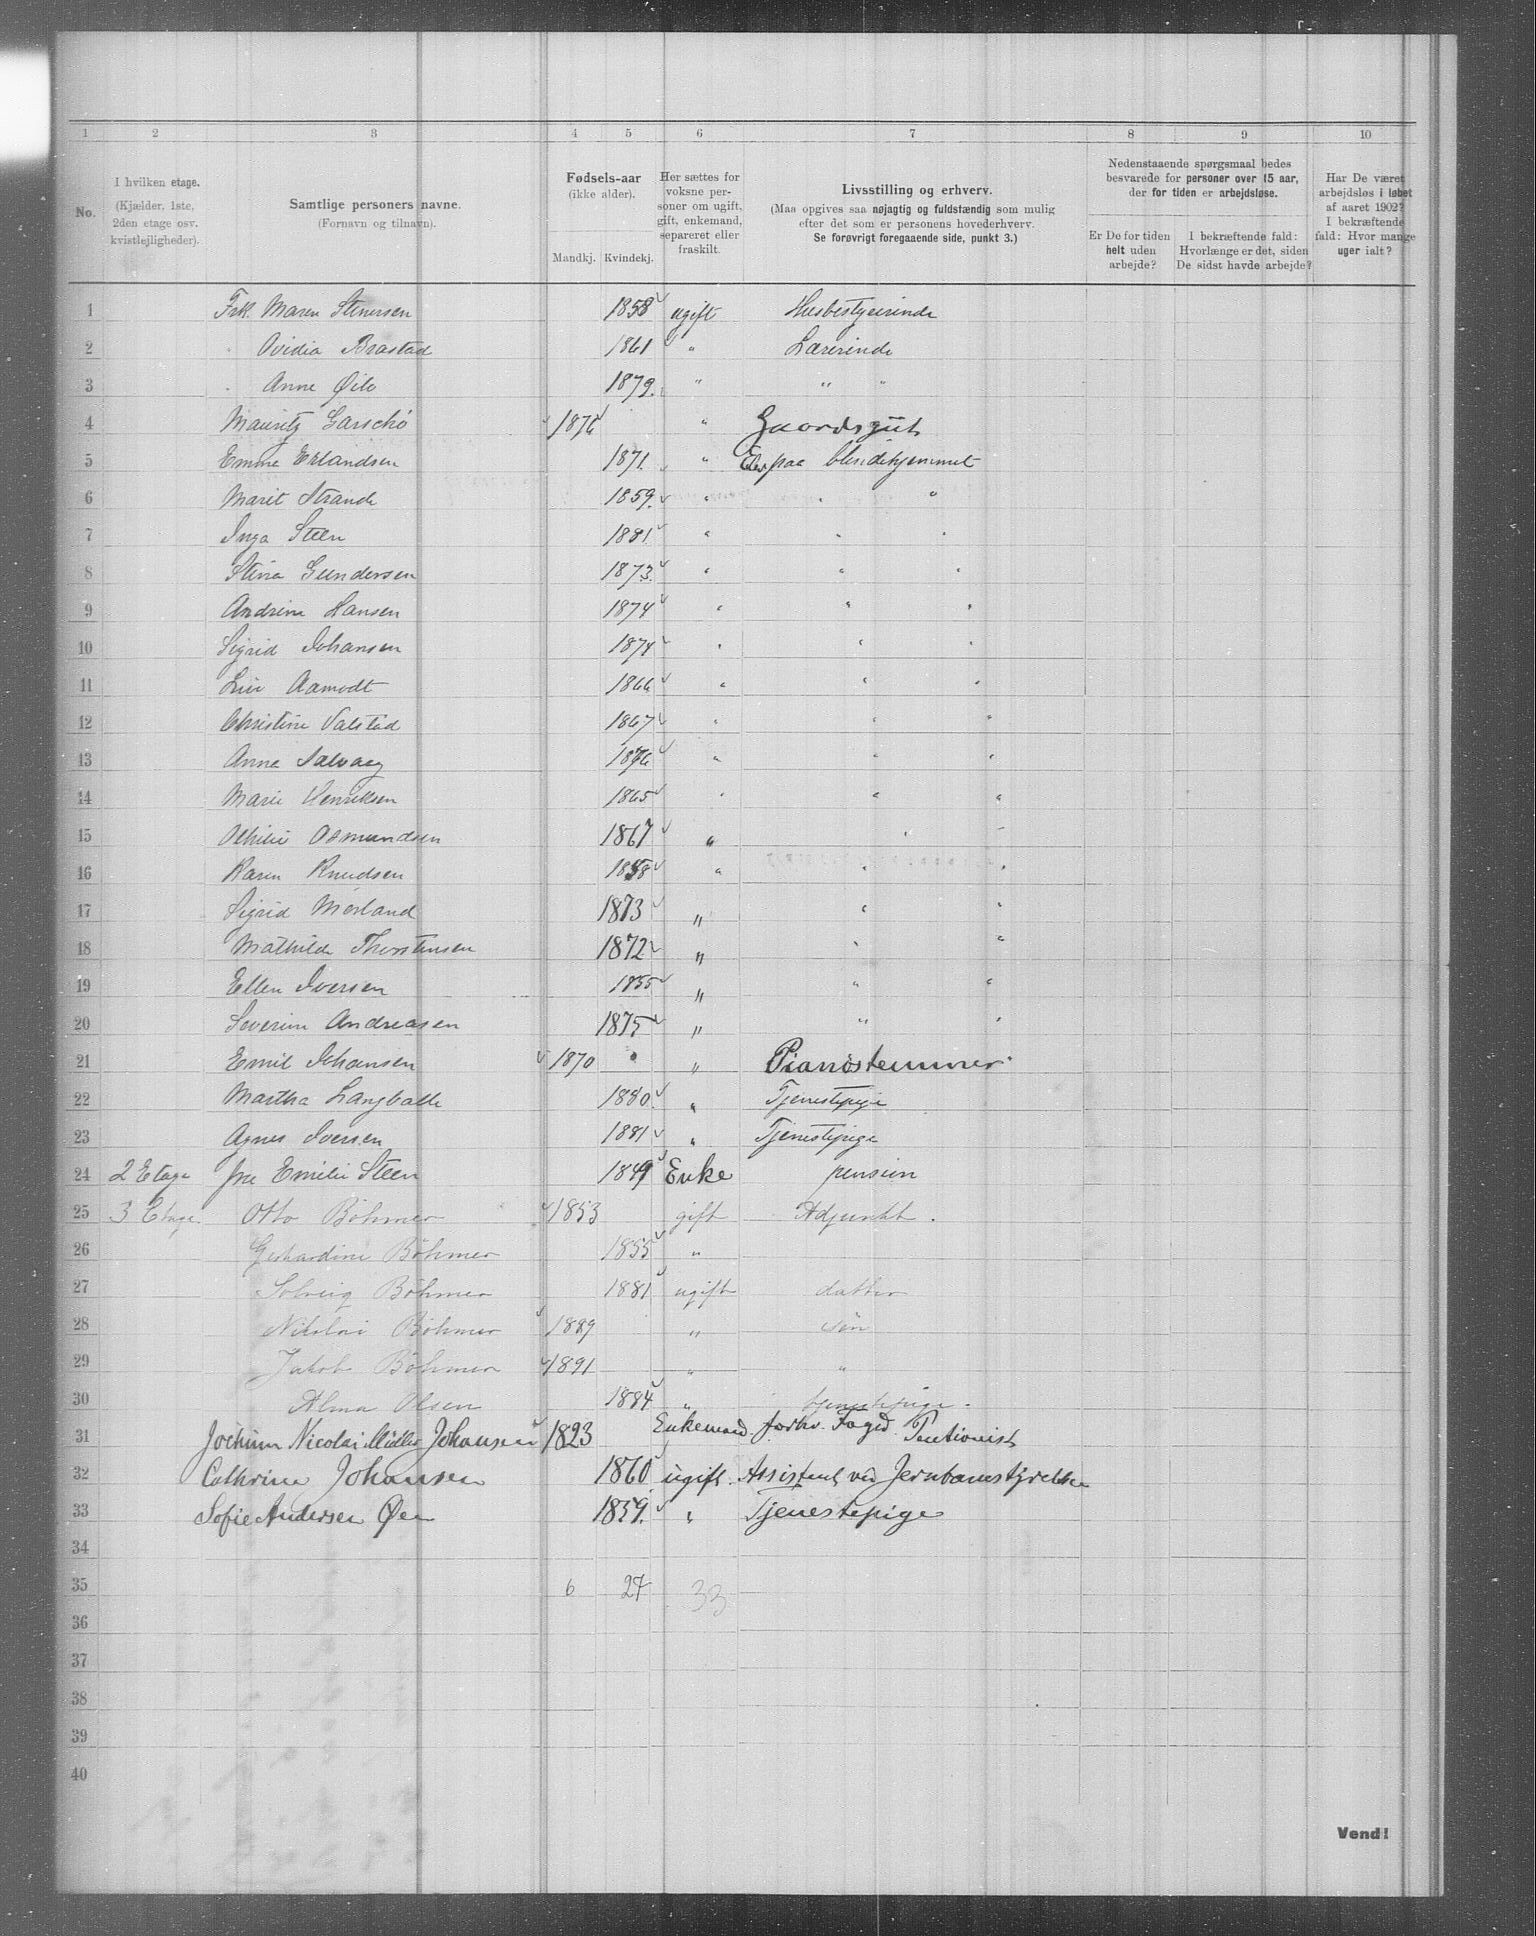 1 2 3 4 5 6 7 8 9 10
No.
I hvilken etage.
(Kjælder, 1ste, 2den etage osv. kvistlejligheder).
Samtlige personers navne.
(Fornavn og tilnavn).
Fødsels-aar
(ikke alder).
Mandkj. Kvindekj.
Her sættes for voksne personer om ugift, gift, enkemand, separeret eller fraskilt.
Livsstilling og erhverv.
(Maa opgives saa nøjagtig og fuldstændig som mulig
efter det som er personens hovederhverv.
Se forøvrigt foregaaende side, punkt 3.)
Nedenstaaende spørgsmaal bedes
besvarede for personer over 15 aar,
der for tiden er arbejdsløse.
Er De for tiden helt uden arbejde?
I bekræftende fald: Hvorlænge er det, siden De sidst havde arbejde?
Har De været arbejdsløs i løbet af aaret 1902? I bekræftende fald: Hvor mange uger ialt?
1 Frk. Maren Stenersen 1858 ugift Husbestyrerinde
2 " Ovidia Brastad 1861 " Lærerinde
3 " Anne Øib 1879 " " "
4 Mauritz Garschó 1876 " Gaardsgut
5 Emma Erlandsen 1871. " Elev paa blindehjemmet
6 Marit Strande 1859. " " "
7 Inga Steen 1881 " " "
8 Stina Gundersen 1873. " " "
9 Andrine Hansen 1874 " " "
10 Sigrid Johansen 1874 " " "
11 Liv Aamodt 1866 " " "
12 Christine Valstad 1867 " " "
13 Anne Salvaag 1876 " " "
14 Marie Henriksen 1865 " " "
15 Othilie Osmundsen 1867 " " "
16 Karen Knudsen 1858 " " "
17 Sigrid Mörland 1873 " " "
18 Mathilde Thorstensen 1872 " " "
19 Ellen Iversen 1855 " " "
20 Severine Andreasen 1875 " " "
21 Emil Johansen 1870 " " Pianostemmer
22 Martha Langballe 1880 " Tjenestepige
23 Agnes Iversen 1881 " Tjenestepige
24 2 Etage fru Emilie Steen 1849 Enke pension
25 3 Etage. Otto Böhmer 1853 gift Adjunkt.
26 Gerhardine Böhmer 1855 "
27 Solveig Böhmer 1881 ugift datter
28 Nikolai Böhmer 1889 " Sön
29 Jakob Böhmer 1891 " "
30 Alma Olsen 1884 " tjenestepige.
31 Jochum Nicolai Müller Johansen 1823 Enkemand. forhv. Foged Pentionist
32 Cathrine Johansen 1860 ugift. Assistent ved Jernbanestyrelsen
33 Sofie Andersen Øen 1859. " Tjenestepige
34
35 6 27 33
36
37
38
39
40
Vend!